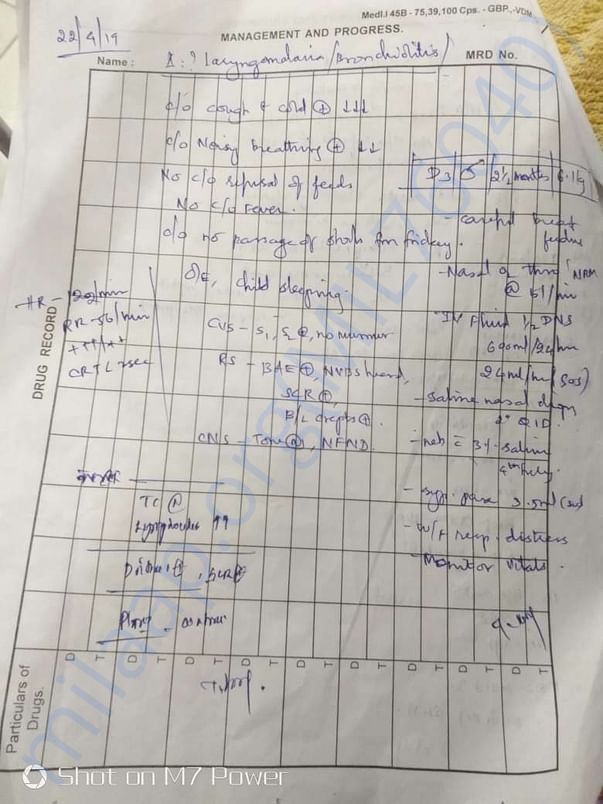 Medl.I 45B - 75,39,100 Cps. - GBP.,-VDM.
MANAGEMENT AND PROGRESS.
22/4/19
Name :
Δ: ? Laryngomalacia / Bronchiolitis /
MRD No.
c/o cough & cold ⊕ ↓↓↓
c/o Noisy breathing ⊕ ↓↓
No c/o refusal of feeds
No c/o Fever.
D3 / ♂ / 2½ months / 6.1kg
- careful breast feeding
c/o no passage of stools from friday.
O/E, child sleeping
- Nasal O2 through NRM
@ 5l/min
HR - 122/min
RR - 56/min
CRT < 2sec
CVS - S1, S2 ⊕, no murmur
RS - BAE ⊕, NVBS heard,
SCR ⊕,
B/L crepts ⊕.
CNS - Tone Ⓝ, NFND.
IV Fluid ½ DNS
600ml/24hr
24ml/hr (sos)
- Saline nasal drops
2° QID.
- neb c̄ 3% saline
4th hrly.
- syp. para 2.5ml (sos)
- W/F resp. distress
- Monitor vitals.
TC Ⓝ
Lymphocytes ↑↑
Plan
DRUG RECORD
Particulars of Drugs.
D T D T D T D T D T D T D T D T
milaap.org(MIL76040)
Shot on M7 Power